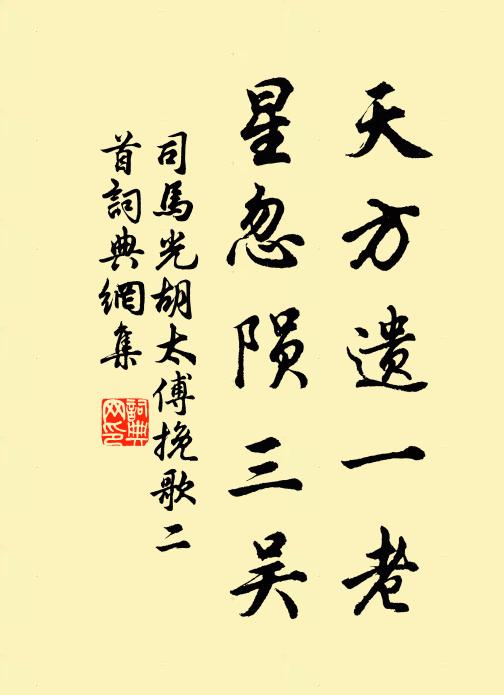 天方遗一老
星忽陨三吴
司馬光胡太傅挽歌二
首詞典網集
詞典
网印